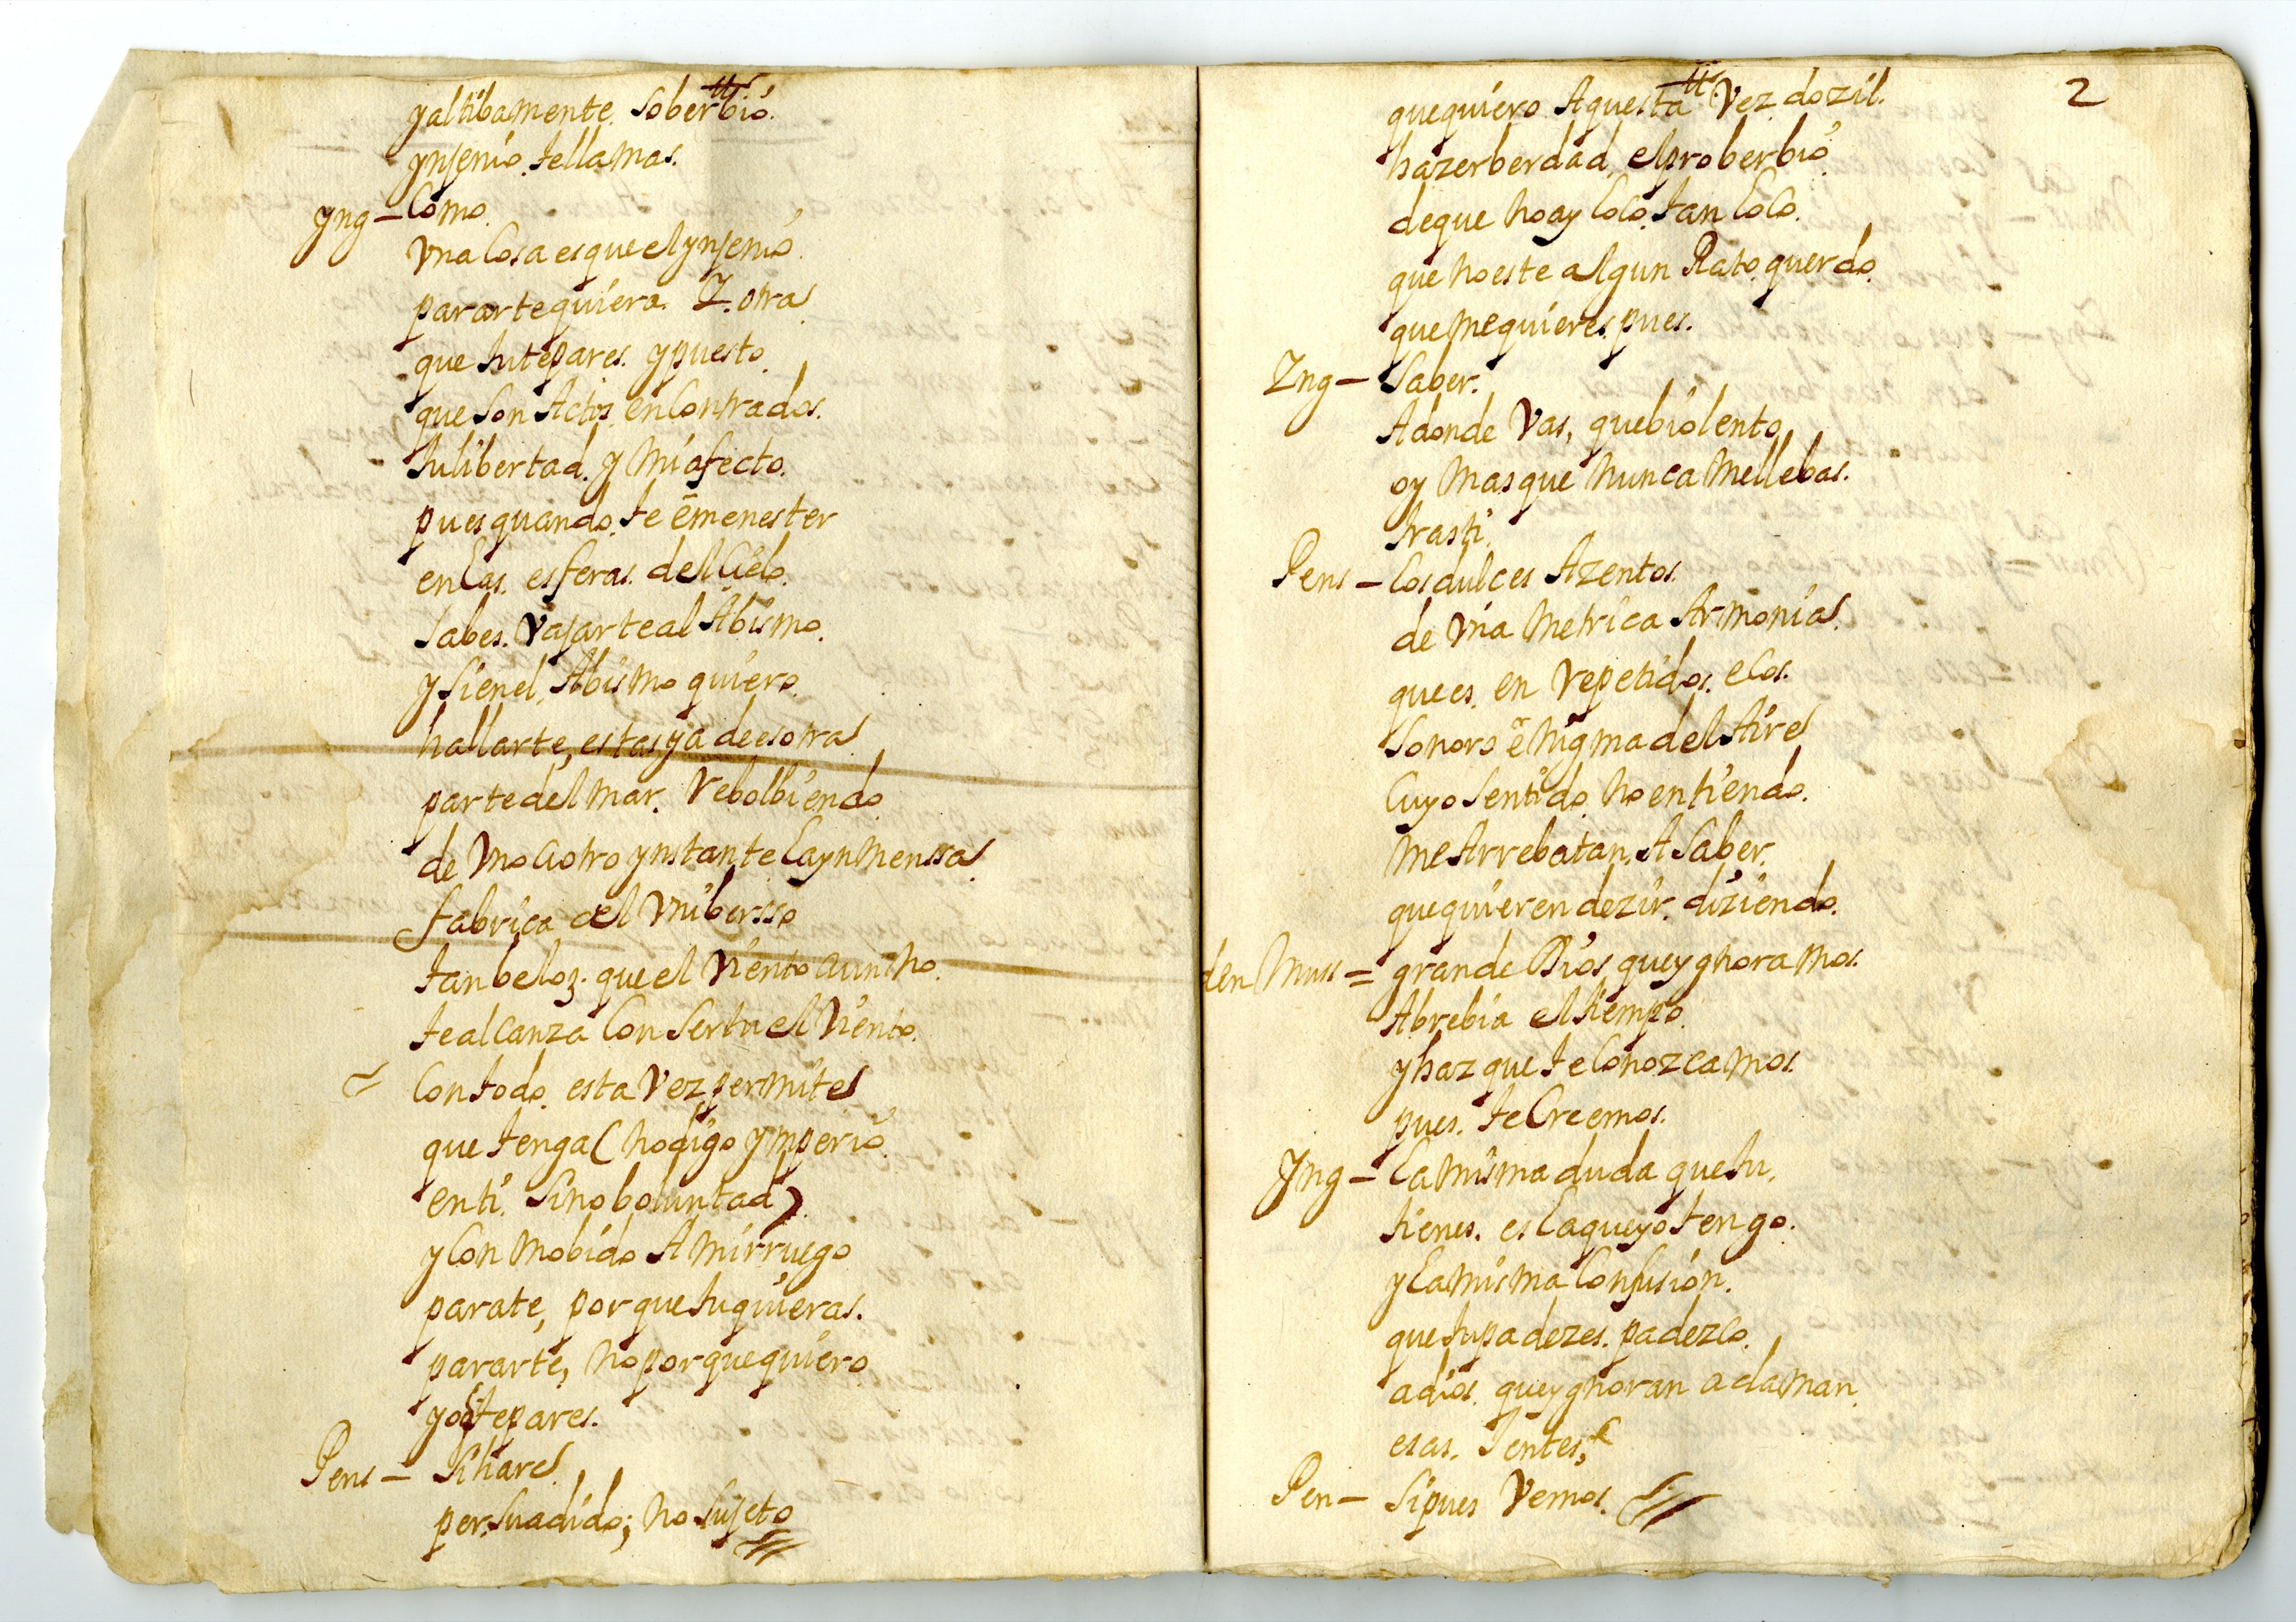 y altibamente. Soberbio.
ynjenio te llamas.
Yng – Como.
Vna Cosa es que el ynjenio.
pararte quiera. Y. otra
que tu te pares. y puesto.
que Son Actos enContrados.
tu libertad. y mi afecto.
pues quando. te ē menester
en las. esferas. del Cielo.
Sabes. Vajarte al Abismo.
y Si en el. Abismo quiero.
hallarte, estas ya de esotra
parte del mar. Rebolbiendo
de Vno a otro ynstante la ynmenssa
fabrica del Vnibersso
tan beloz. que el Viento aun no.
te alcanza Con Ser tu el Viento.
Con todo. esta Vez permite
que tenga (no digo ymperio
en ti. Sino boluntad)
y Con mobido A mi rruego
parate, por que tu quieras.
pararte, no por que quiero
yo q te pares.
Pens – Si hare.
perSuadido; no Sujeto
2
que quiero Aquesta Vez dozil.
hazer berdad el proberbio
de que no ay loco. tan loco.
que no este algun Rato. querdo.
que me quieres. pues.
Yng – Saber.
A donde Vas, que biolento
oy mas que nunca me llebas.
tras ti.
Pens – los dulces Azentos.
de Vna metrica Armonia
que es. en Repetidos. ecos.
Sonoro ēnigma del Aire
Cuyo Sentido no entiendo.
me Arrebatan. A Saber.
que quieren dezir. diziendo.
den Muss = grande Dios que ygnoramos.
Abrebia el tiempo.
y haz que te Conozcamos.
pues. te Creemos.
Yng – la misma duda que tu.
tienes. es la que yo tengo.
y la misma Confusion.
que tu padezes. padezco.
a dios. que ygnoran aclaman.
esas. Jentes,
Pen – Si pues Vemos.